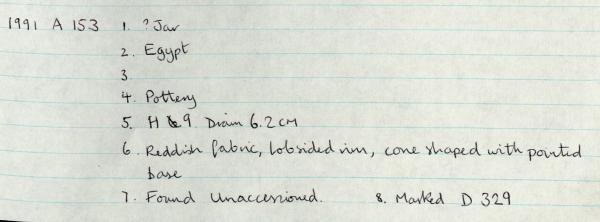 1991 A 153 1. ? Jar
2. Egypt
3
4. Pottery
5. H 9. Diam 6.2 CM
6. Reddish fabric, lobsided rim, cone shaped with pointed
base
7. Found Unaccessioned. 8. Marked D 329